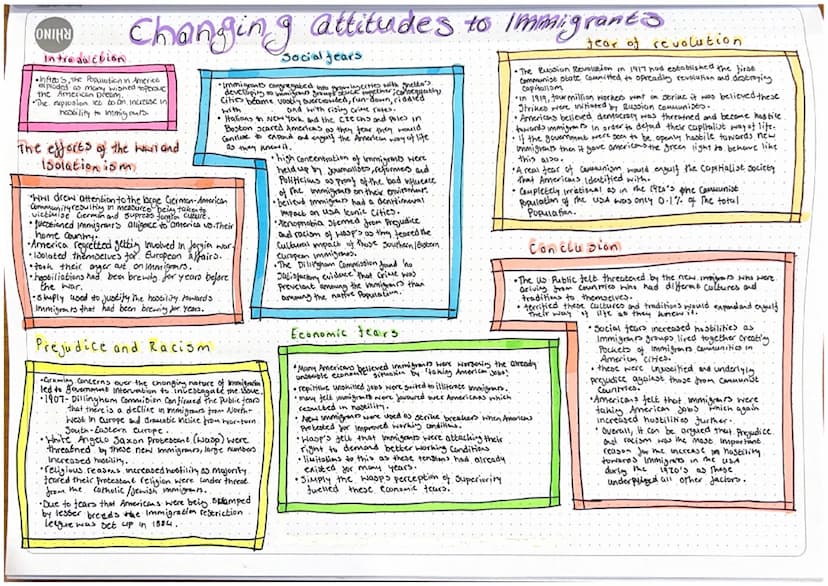 Changing attitudes to Immigrants
RHINO
Introduction
• Intro's, the Population in America
exploded as many wished to pursue
the American Dream.
• The explosion led to an increase in
hostility to immigrants.
The effects of the War and
Isolationism
• WWI drew attention to the large German-American
Community resulting in measures being taken to
victimise German and supress foreign culture.
• Questioned immigrants alligence to America vs. Their
home country.
• America regretted getting involved in foreign war.
• Isolated themselves for European affairs.
• took their anger out on immigrants.
• hostilities had been brewing for years before
the war.
• simply used to justify the hostility towards
immigrants that had been brewing for years.
Prejudice and Racism
• Growing concerns over the changing nature of immigration
led to government intervention to investigate the issue.
• 1907 - Dillingham Commission Confirmed the Public fears
that there is a decline in immigrants from North-
West in Europe and dramatic incline from
South-Eastern Europe.
• White Anglo Saxon Protestant (WASP) were
threatened by these new immigrants, large numbers
increased hostility.
• religious reasons increased hostility as majority
feared their protestant religion were under threat
from the Catholic / Jewish immigrants.
• Due to fears that Americans were being swamped
by lesser breeds the Immigration restriction
League was set up in 1884.
Social fears
• Immigrants congregated into growing cities with ghetto's
developing as immigrant groups stuck together. Consequently,
Cities became vastly overcrowded, run-down, riddled
with and with rising crime rates.
• Italians in New York and the Czechs and Poles in
Boston scared Americans as they fear they would
continue to expand and engulf the American way of life
as they knew it.
• high concentration of immigrants were
held up by journalists, reformers and
Politicians as proof of the bad influence
of the immigrants on their environment.
• believed immigrants had a detrimental
impact on USA iconic cities.
• Xenophobia stemmed from Prejudice
and racism of WASP's as they feared the
Cultural impact of those Southern/Eastern
european immigrants.
• The Dillingham Commission found no
Satisfactory evidence that crime was
Prevelant among the immigrants than
among the native Population.
Economic fears
• Many Americans believed immigrants were worsening the already
unstable economic situation by 'taking American jobs'.
• repititive unskilled jobs were suited to illiterate immigrants.
• many felt immigrants were favoured over Americans which
resulted in hostility.
• New immigrants were used as strike breakers when Americans
Protested for improved working conditions.
• WASP's felt that immigrants were attacking their
right to demand better working conditions
• limitations to this as these tensions had already
existed for many years.
• Simply the WASPs perception of Superiority
fuelled these economic fears.
fear of revolution
• The Russian Revolution in 1917 had established the first
communist State committed to spreading revolution and destroying
capitalism.
• In 1919, four million workers went on strike it was believed these
Strikes were initiated by Russian communists.
• Americans believed democracy was threatened and became hostile
towards immigrants in order to defend their capitalist way of life.
• if the government were seen to be openly hostile towards new
immigrants then it gave americans the green light to behave like
this also.
• A real fear of communism would engulf the capitalist society
that Americans identified with.
• Completely irrational as in the 1920's the Communist
population of the USA was only 0.1% of the total
Population.
Conclusion
• The US Public felt threatened by the new immigrants who were
arriving from countries who had different cultures and
traditions to themselves.
• terrified these cultures and traditions would expand and engulf
their way of life as they knew it.
• Social fears increased hostilities as
Immigrant groups lived together creating
Pockets of immigrant communities in
American cities.
• these were unjustified and underlying
prejudice against those from communist
Countries.
• Americans felt that immigrants were
taking American jobs which again
increased hostilities further.
• Overall, it can be argued that Prejudice
and racism was the most important
reason for the increase in hostility
towards immigrants in the USA
during the 1920's as these
underplayed all other factors.